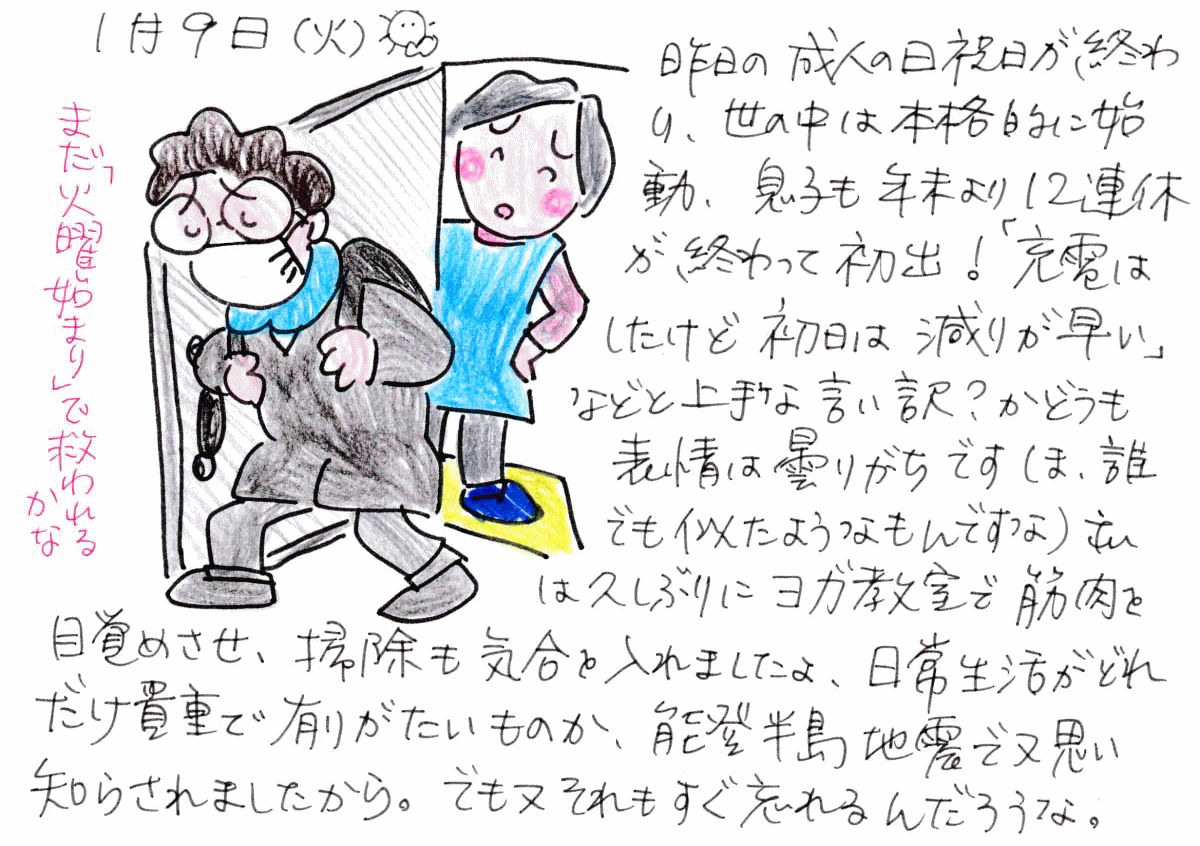 1月9日(火)
昨日の成人の日祝日が終わ
り、世の中は本格的に始
動、息子も年末より12連休
が終わって初出!「充電は
したけど初日は減りが早い」
などと上手な言い訳?かどうも
表情は曇りがちです(ま、誰
でも似たようなもんですな)私
は久しぶりにヨガ教室で筋肉を
目覚めさせ、掃除も気合を入れましたよ、日常生活がどれ
だけ貴重で有りがたいものか、能登半島地震で又思い
知らされましたから。でも又それもすぐ忘れるんだろうな。
まだ「火曜始まり」で救われる
かな